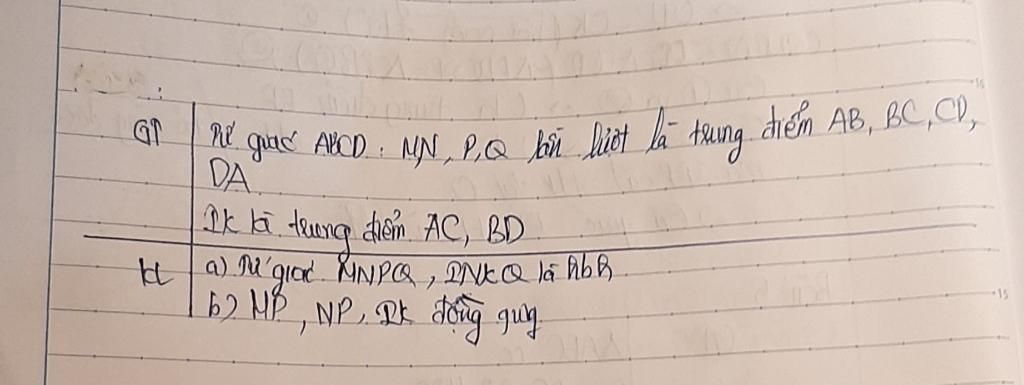 GT Tứ giác ABCD: M,N, P,Q lần lượt là trung điểm AB, BC, CD,
DA
I,K là trung điểm AC, BD
KL a) Tứ giác MNPQ, INKQ là hbh
b) MP, NP, IK đồng quy